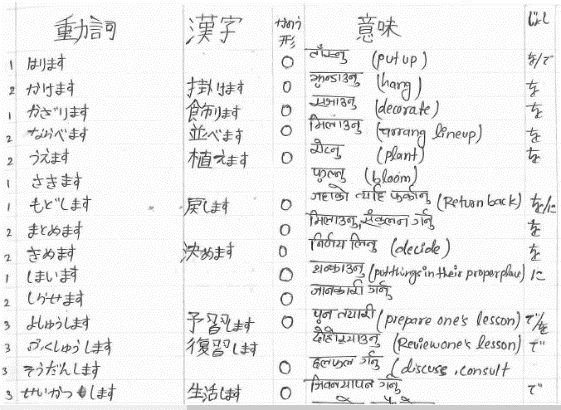 動詞 漢字 ますの形 意味 じょし
1 はります ○ टाँस्नु (put up) を/で
2 かけます 掛けます ○ झुन्डाउनु (hang) を
1 かざります 飾ります ○ सजाउनु (decorate) を
2 ならべます 並べます ○ मिलाउनु (arrang lineup) を
2 うえます 植えます ○ रोप्नु (plant) を
1 さきます फुल्नु (bloom)
1 もどします 戻します ○ जहाको त्यहि फर्काउनु (Return back) を/に
2 まとめます ○ मिलाउनु, संकलन गर्नु を
2 きめます 決めます ○ निर्णय लिनु (decide) を
1 しまいます ○ थन्काउनु (put things in their proper place) に
2 しらせます ○ जानकारी गर्नु
3 よしゅうします 予習します ○ पुर्न तयारी (prepare one's lesson) で/を
3 ふくしゅうします 復習します दोहोर्‍याउनु (Review one's lesson) で
3 そうだんします ○ छलफल गर्नु (discuss, consult
3 せいかつします 生活します ○ जिवनयापन गर्नु で